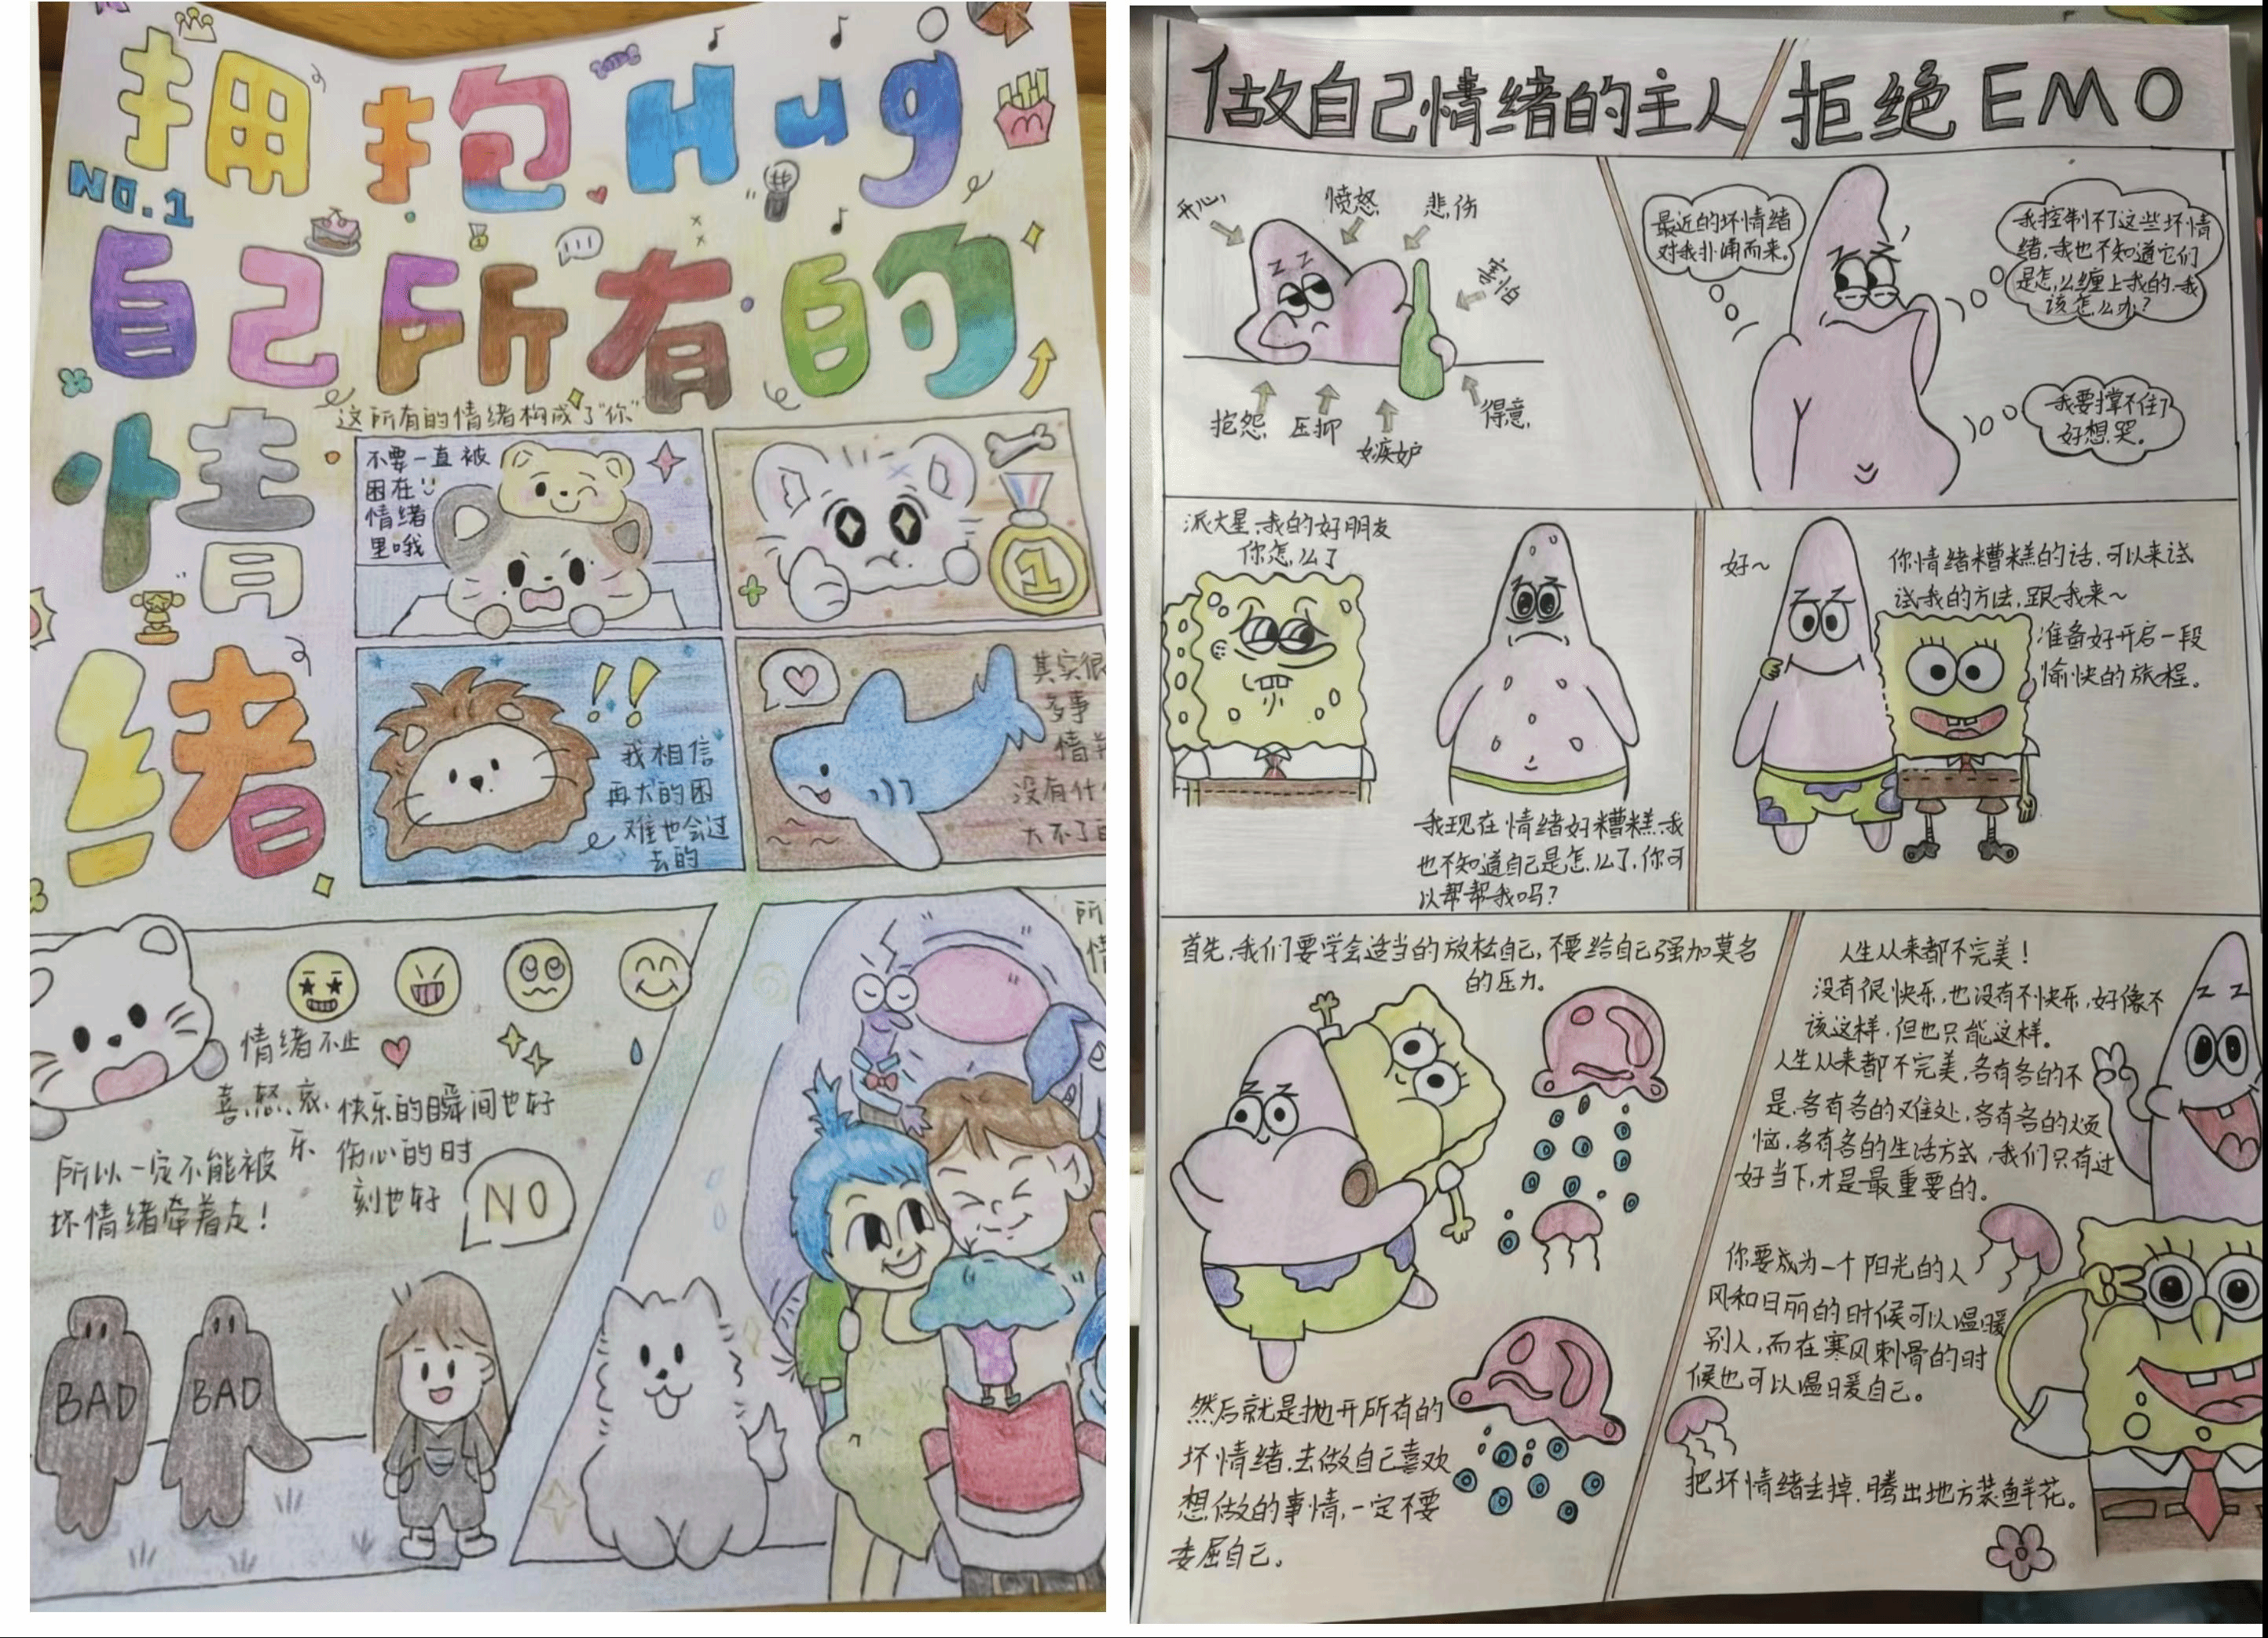 拥抱Hug
NO.1
自己所有的
情
绪
这所有的情绪构成了"你"
不要一直被
困在
情绪
里哦
1
我相信
再大的困
难也会过
去的
其实很
多事
情
没有什
大不了
情绪不止
喜、怒、哀、
乐
快乐的瞬间也好
伤心的时
刻也好
所以一定不能被
坏情绪牵着走！
NO
BAD
BAD
所
做自己情绪的主人/拒绝EMO
开心
愤怒
悲伤
害怕
抱怨
压抑
嫉妒
得意
最近的坏情绪
对我扑涌而来。
我控制不了这些坏情
绪，我也不知道它们
是怎么缠上我的，我
该怎么办？
我要撑不住了
好想哭。
派大星，我的好朋友
你怎么了
我现在情绪好糟糕，我
也不知道自己是怎么了，你可
以帮帮我吗？
好~
你情绪糟糕的话，可以来试
试我的方法，跟我来~
准备好开启一段
愉快的旅程。
首先，我们要学会适当的放松自己，不要给自己强加莫名
的压力。
然后就是抛开所有的
坏情绪，去做自己喜欢
想做的事情，一定不要
委屈自己。
人生从来都不完美！
没有很快乐，也没有不快乐，好像不
该这样，但也只能这样。
人生从来都不完美，各有各的不
是，各有各的难处，各有各的烦
恼，各有各的生活方式，我们只有过
好当下，才是最重要的。
你要成为一个阳光的人
风和日丽的时候可以温暖
别人，而在寒风刺骨的时
候也可以温暖自己。
把坏情绪丢掉，腾出地方装鲜花。